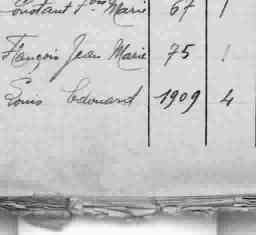 Constant Fois Marie 67 1
François Jean Marie 75 1
Louis Edouard 1909 4